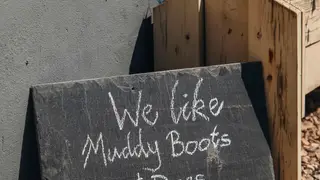 We like
Muddy Boots
Dogs